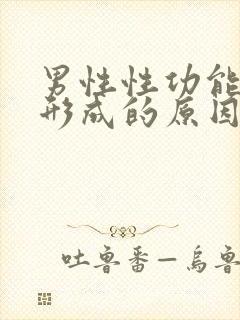 男性性功能
形成的原因
吐鲁番—乌鲁